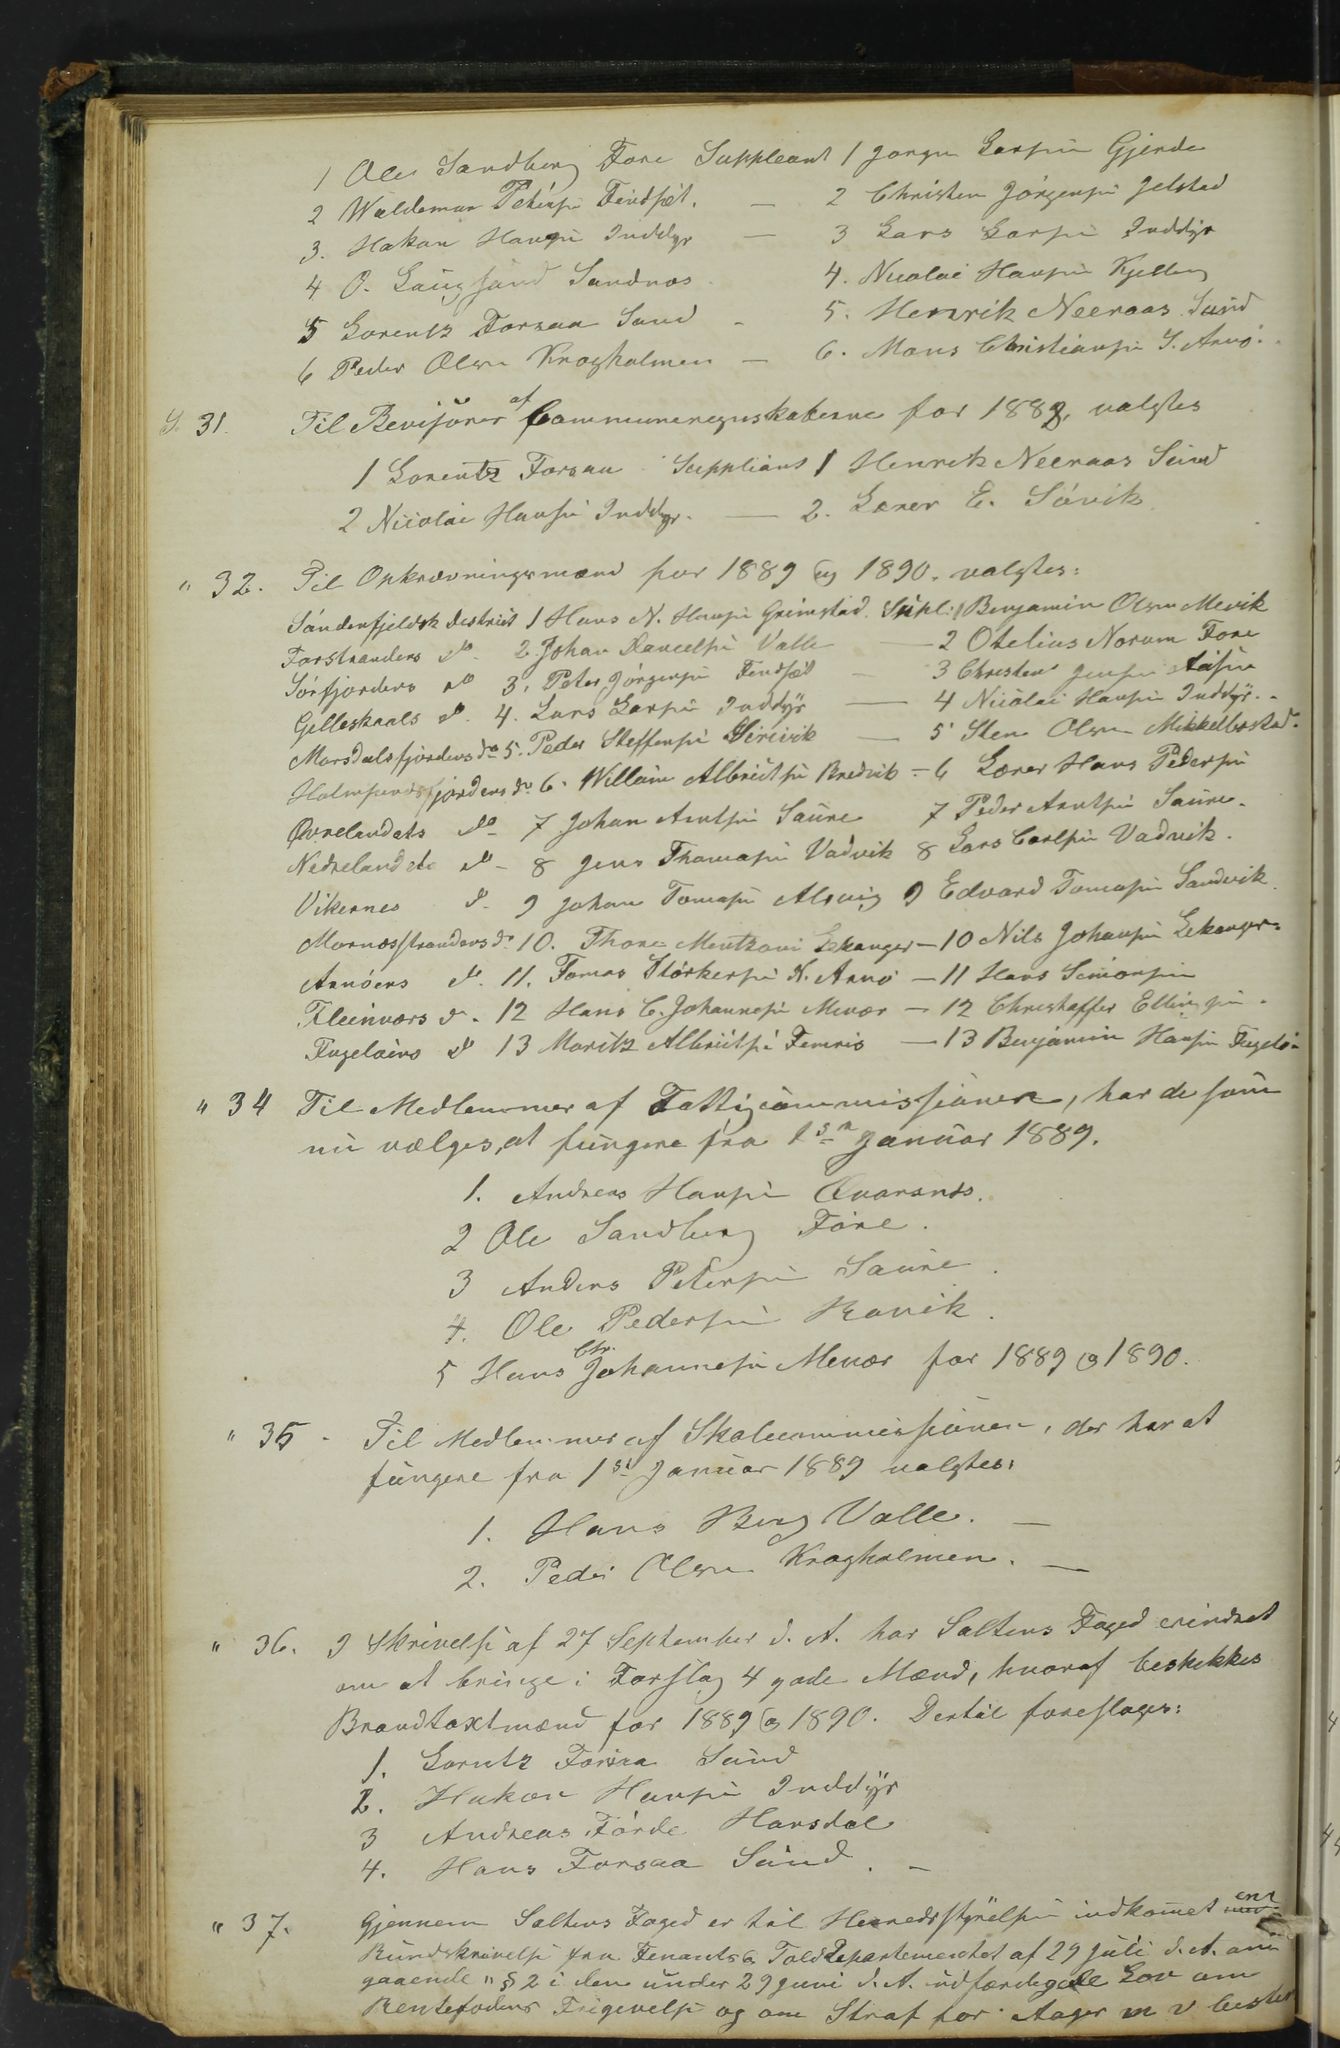 1 Ole Sandberg Fore Suppleant 1 Jørgen Larsen Gjerde
2 Waldemar Petersen Findset. — 2 Christen Jörgensen Jelstad
3. Hakon Hansen Inddyr — 3 Lars Larsen Inddyr
4 O. Sandnes 4. Nicolai Hansen Kjelling
5 Lorentz Forsaa Sund - 5. Henrik Neeraas Sund
6 Peder Olsen Kragholmen — 6. Mons Christiansen S. Arnö.
§ 31. Til Revisörer af Communeregnskaberne for 1888, valgtes
1 Lorentz Forsaa Suppleant 1 Henrik Neeraas Sund
2 Nicolai Hansen Inddyr. — 2. Lærer E. Sövik
" 32. Til Opkrævningsmænd for 1889 og 1890. valgtes:
Söndenfjeldsk District 1 Hans N. Hansen Grimstad. Supl. 1 Benjamin Olsen Mevik
Forstrandens do. 2. Johan Danielsen Valle — 2 Otelius Norum Fore
Sörfjordens do 3. Peter Jörgensen Findset — 3 Christen Jensen
Gilleskaals do. 4. Lars Larsen Inddyr — 4 Nicolai Hansen Inddyr.
Morsdalsfjordens do 5. Peder Steffensen — 5 Sten Olsen Mikkelbostad.
Holmsundsfjordens do 6. Willum Albrictsen Bredvik - 6 Lærer Hans Pedersen
Øvrelandets do 7 Johan Arntsen Saura 7 Peder Arntsen Saura.
Nedrelandets do - 8 Jens Thomasen Vadvik 8 Lars Carlsen Vadvik.
Vikernes do. 9 Johan Tomasen Alsvig 9 Edvard Tomasen Sandvik.
Mornesstrandens do. 10. Thore Mentzoni Lekanger — 10 Nils Johansen Lekanger.
Arnöens do. 11. Tomas Störkersen N. Arnö — 11 Hans Simonsen
Fleinværs do. 12 Hans C. Johannesen Mevær — 12 Christoffer Ellingsen.
Fugelöens do 13 Moritz Albrictsen Femris — 13 Benjamin Hansen Fugelö
" 34 Til Medlemmer af Fattigcommissionen, har de som
nu vælges, at fungere fra 1ste Januar 1889.
1. Andreas Hansen Qvarsnes.
2 Ole Sandberg Före.
3 Anders Petersen Saura.
4. Ole Pedersen Ravik.
5 Hans Chr. Johannesen Mevær for 1889 og 1890.
" 35 - Til Medlemmer af Skolecommissionen, der har at
fungere fra 1st Januar 1889 valgtes:
1. Hans Berg Valle. —
2. Peder Olsen Kragholmen. —
" 36. I Skrivelse af 27 September d. A. har Saltens Foged erindret
om at bringe i Forslag 4 gode Mænd, hvoraf beskikkes
Brandtaxtmænd for 1889 og 1890. Dertil foreslages:
1. Lorentz Forsaa Sund
2. Hakon Hansen Inddyr
3 Andreas Förde Horsdal
4. Hans Forsaa Sund. -
" 37. Gjennem Saltens Foged er til Herredsstyrelsen indkommet en
Rundskrivelse fra Finants & Told Departementet af 29 Juli d. A. an
gaaende "§ 2 i den under 29 Juni d. A. udfærdigede Lov om
Rentefodens Frigivelse og om Straf for Aager m v